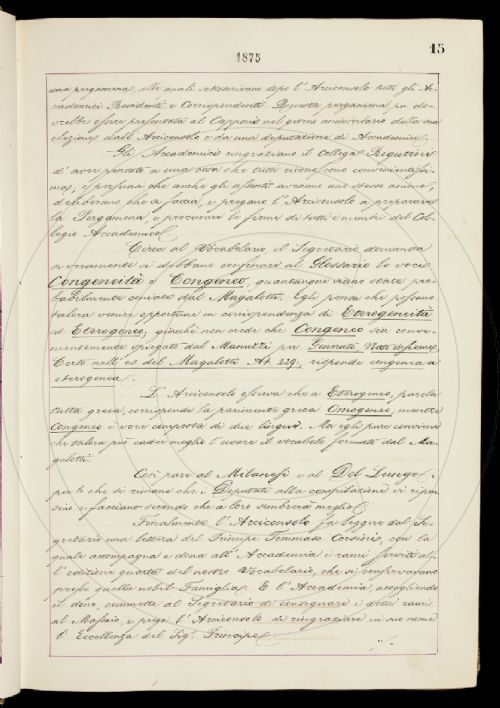 15
1875
una pergamena, alla quale sottoscrivano dopo l'Arciconsolo tutti gli Ac-
cademici Residenti e Corrispondenti. Questa pergamena poi do-
vrebbe essere presentata al Capponi nel giorno anniversario della sua
elezione dall'Arciconsolo e da una deputazione di Accademici.
Gli Accademici ringraziano il collega Rigutini
d'aver pensato a una cosa che tutti dicono convenientissi-
ma; e persuasi che anche gli assenti avranno uno stesso animo,
deliberano che si faccia, e pregano l'Arciconsolo a preparare
la Pergamena, e procurare le firme di tutti i membri del Col-
legio Accademico.
Circa al Vocabolario, il Segretario domanda
se veramente si debbano confinare al Glossario le voci
Congeneità e Congeneo, quantunque siano state pro-
babilmente coniate dal Magalotti. Egli pensa che possano
talora venire opportune in corrispondenza di Eterogeneità
ed Eterogeneo; giacchè non crede che Congeneo sia conve-
nientemente spiegato dal Manuzzi per Generato, Nato insieme.
Certo nell'es. del Magalotti At. 229, risponde congenea a
eterogenea.
L'Arciconsolo osserva che a Eterogeneo, parola
tutta greca, corrisponde la parimente greca Omogeneo, mentre
Congeneo è voce composta di due lingue. Ma egli pure conviene
che talora può cader meglio l'usare il vocabolo formato dal Ma-
galotti.
Così pare al Milanesi e al Del Lungo;
per lo che si rimane che i Deputati alla compilazione vi ripen-
sino e facciano secondo che a loro sembrerà meglio.
Finalmente l'Arciconsolo fa leggere dal Se-
gretario una lettera del Principe Tommaso Corsini, con la
quale accompagna e dona all'Accademia i rami serviti al-
l'edizione quarta del nostro Vocabolario, che si conservavano
presso quella nobil Famiglia. E l'Accademia, accogliendo
il dono, commette al Segretario di consegnare i detti rami
al Massaio, e prega l'Arciconsolo di ringraziare in suo nome
l'Eccellenza del Sigr. Principe.